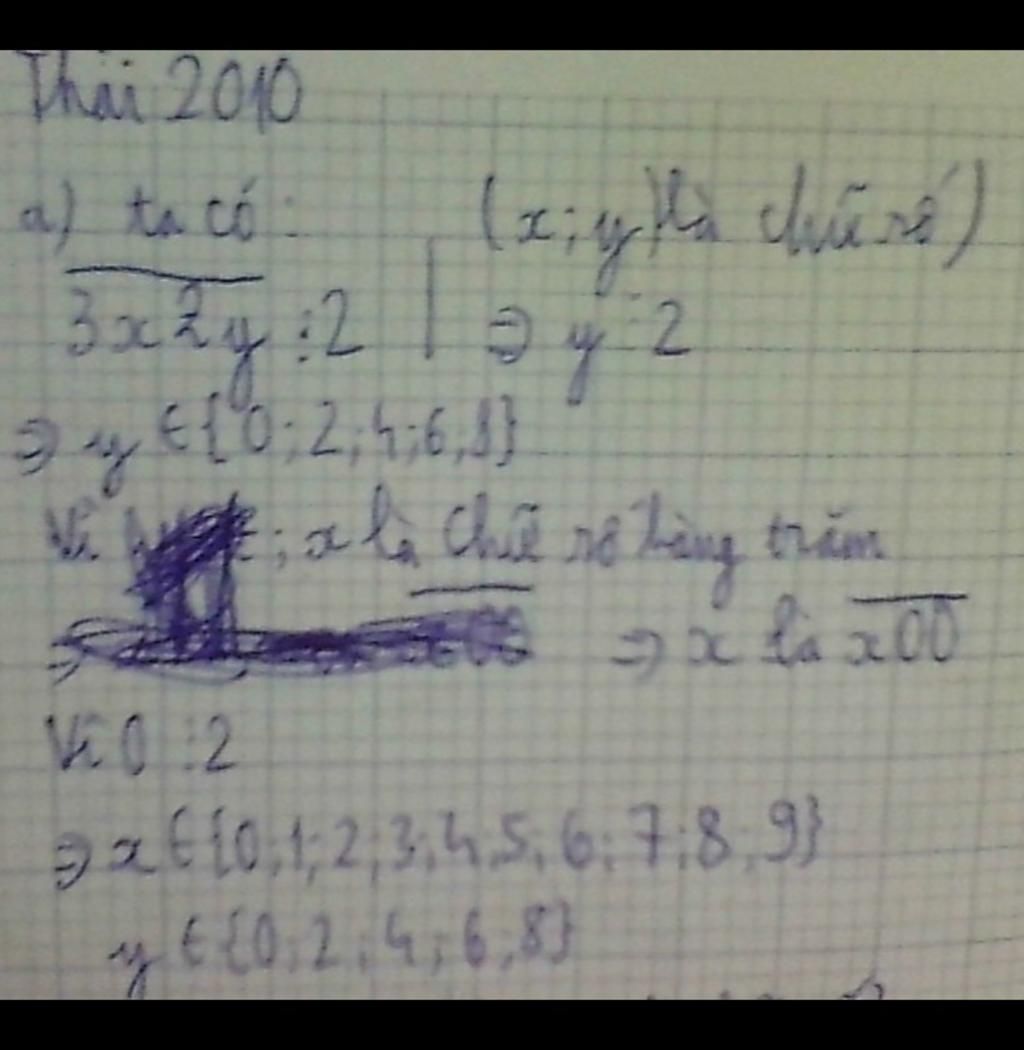 Thái 2010
a) ta có: (x; y là chữ số)
3x2y ⋮ 2 | ⇒ y ⋮ 2
⇒ y ∈ {0; 2; 4; 6; 8}
Vì ; x là chữ số hàng trăm
⇒ x là x00
Vì 0 ⋮ 2
⇒ x ∈ {0; 1; 2; 3; 4; 5; 6; 7; 8; 9}
y ∈ {0; 2; 4; 6; 8}